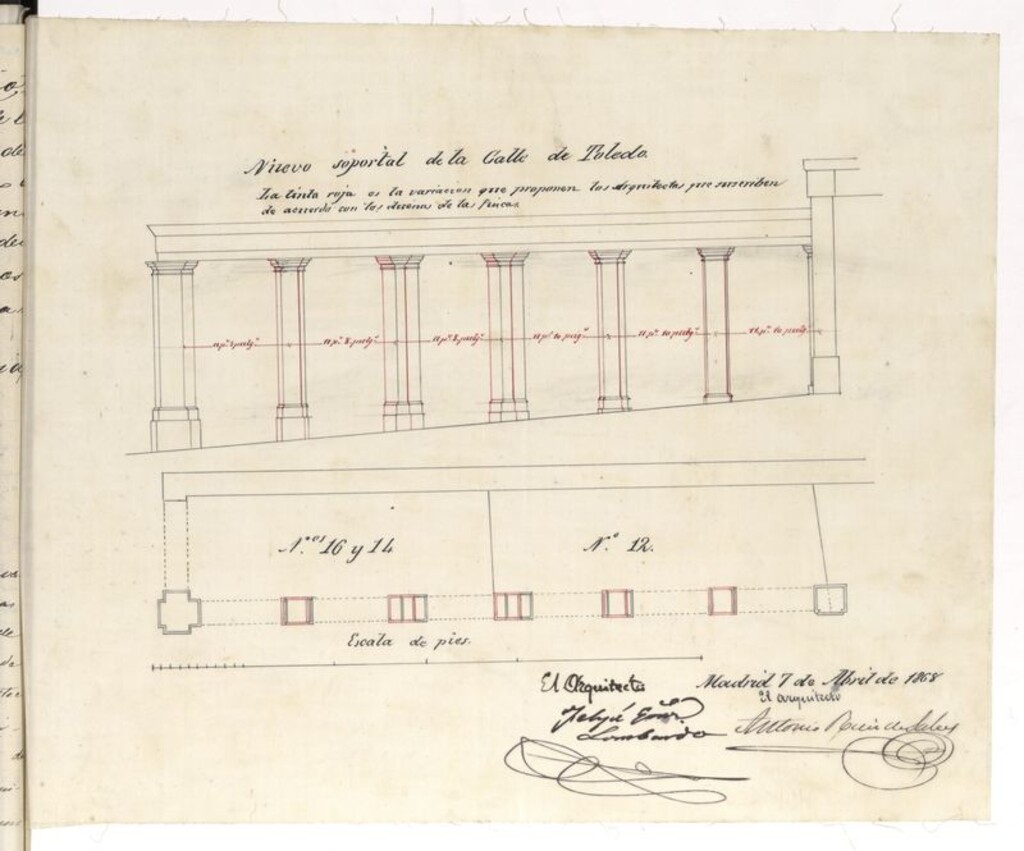 Nuevo soportal de la Calle de Toledo.
La tinta roja es la variacion que proponen los Arquitectos que suscriben
de acuerdo con los dueños de las fincas.
11 ps. 8 pulgs. 11 ps. 8 pulgs. 11 ps. 10 pulgs. 11 ps. 10 pulgs. 11 ps. 10 pulgs.
N.os 16 y 14
N.o 12.
Escala de pies.
Madrid 7 de Abril de 1868
El Arquitecto
El arquitecto
Lombardo
Antonio Ruiz de Salces